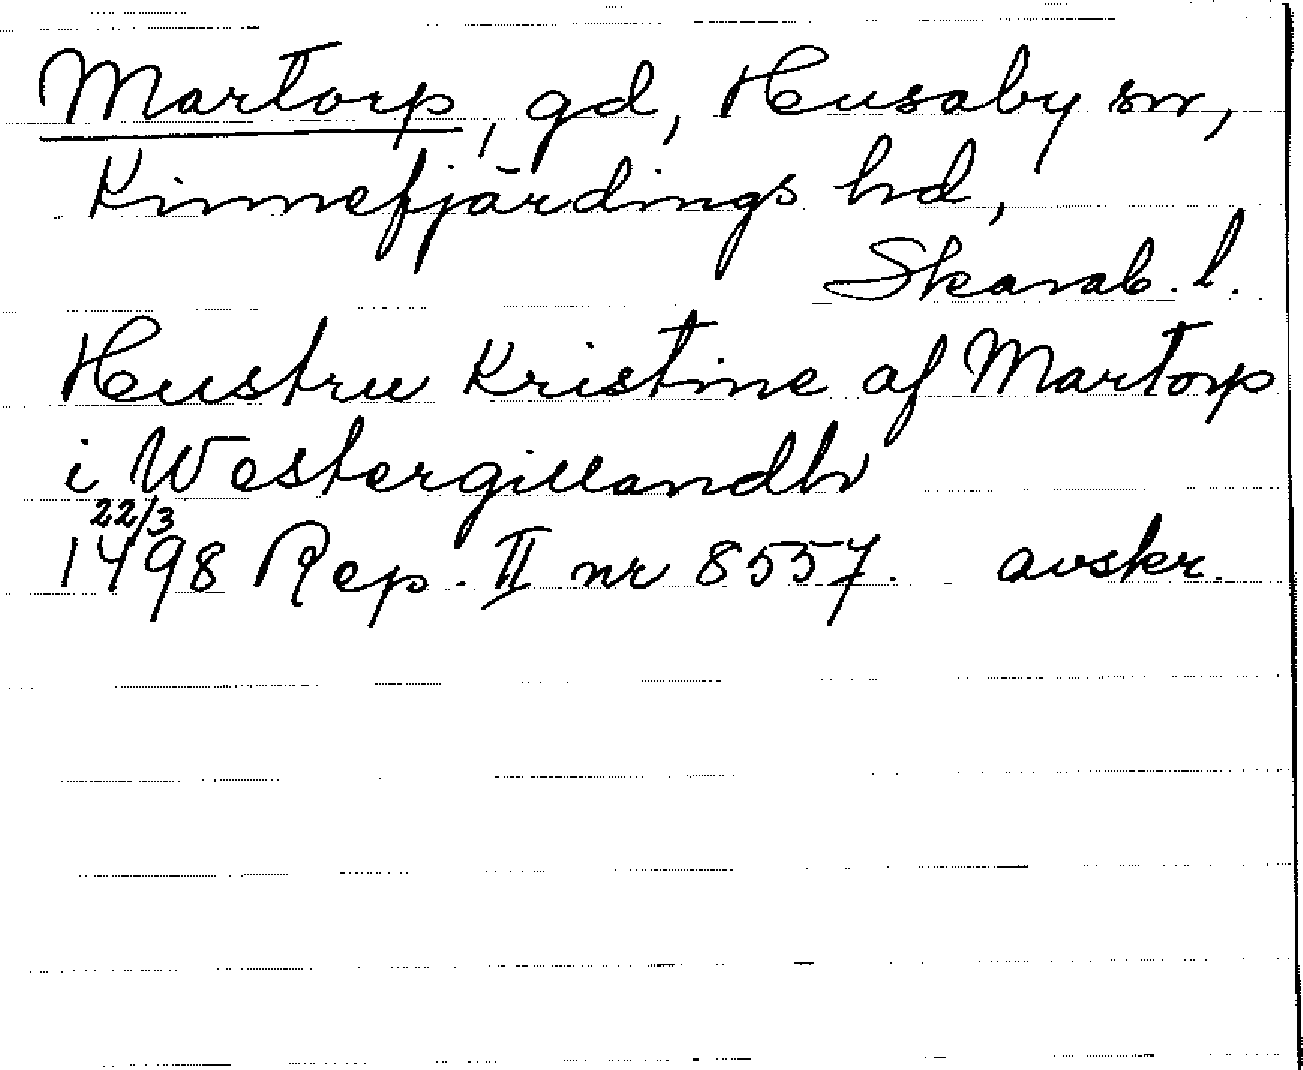 Martorp, gd, Husaby sn,
Kinnefjärdings hd,
Skarab. l.
Hustru Kristine af Martorp
i Westergillandh
22/3
1498 Rep. II nr 8557. avskr.